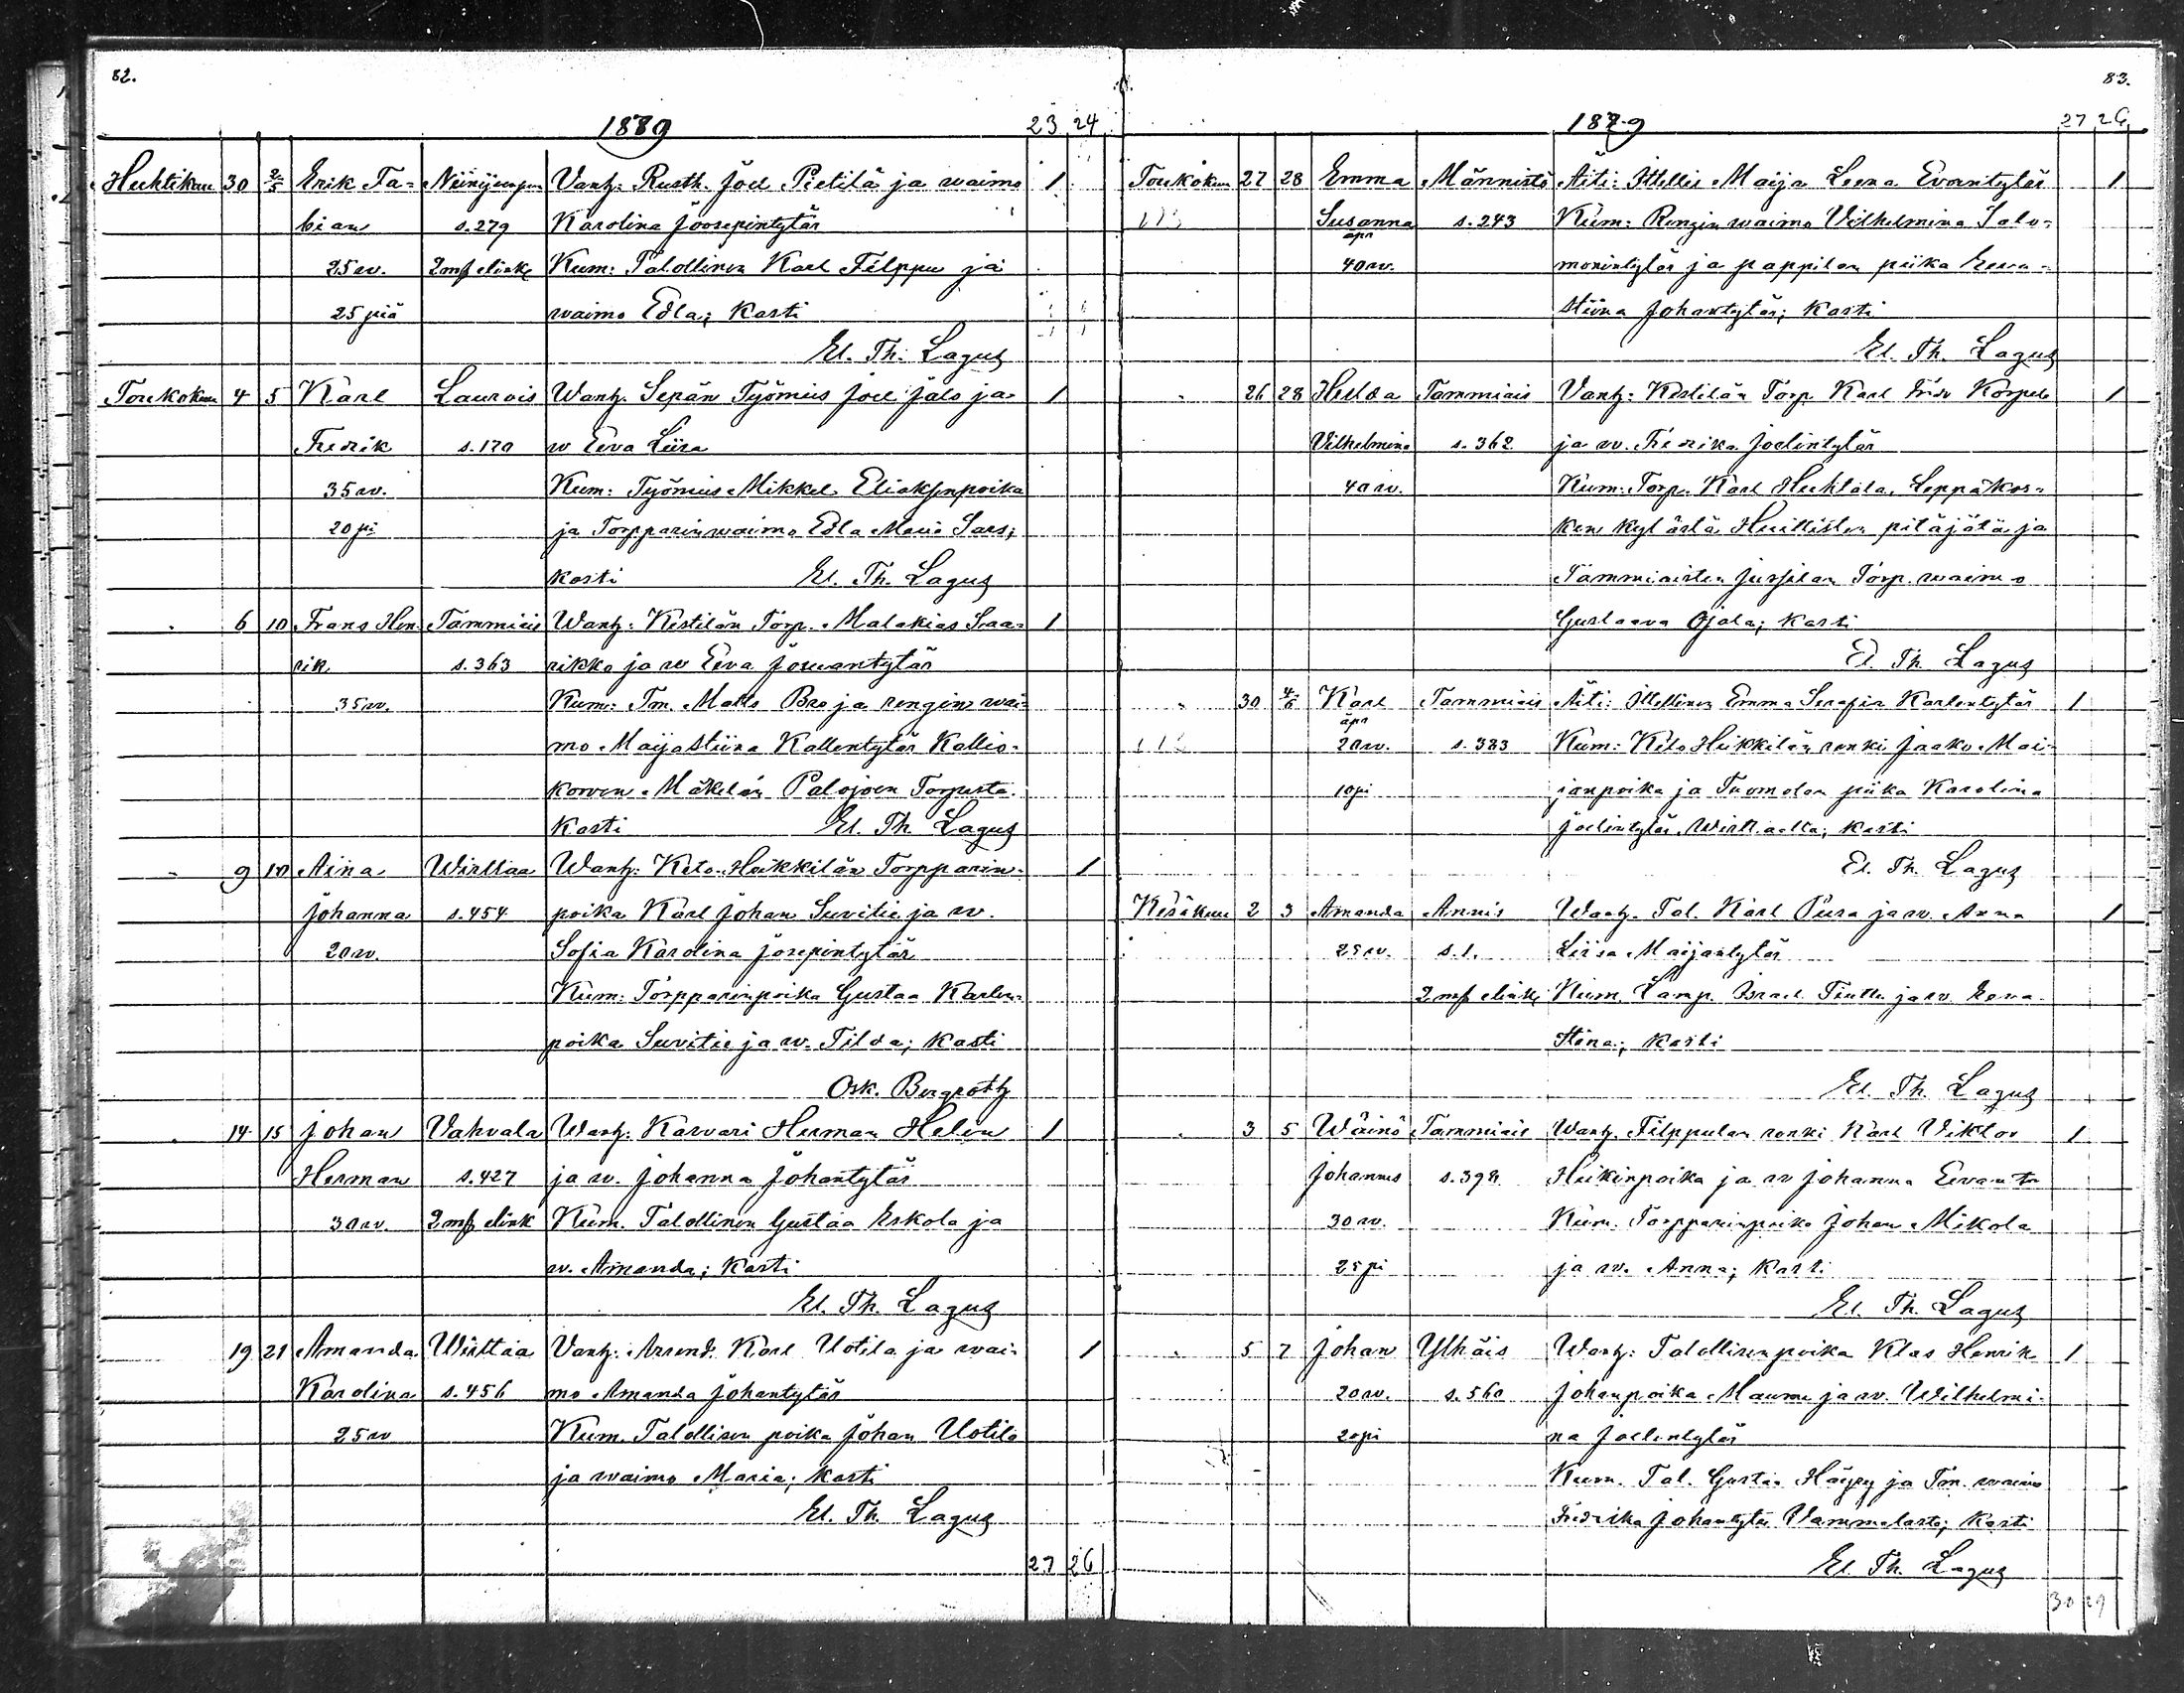 82.
1879 23 24
Huhtikuu 30 2/5 Erik Fa= Vanh: Rusth. Joel Pietilä ja waimo 1
bian s.279 Karolina Joosepintytär
25 w. 2 mf eliake Kum: Talollinen Karl Filppu ja
25 piä waimo Edla; Kasti
El. Th. Lagus
Toukokuu 4 5 Karl Laurois Wanh. Sepän Työmies Joel Jalo ja 1
Fredrik s.170 w Eeva Liisa
35 w. Kum: Työmies Mikkel Eliaksenpoika
20 pi ja Torpparinwaimo Edla Maria Sars;
kasti El. Th. Lagus
6 10 Frans Hen Tammiais Wanh: Kestilän Torp. Malakias Saa= 1
rik s.363 rikko ja w Eeva Jouwantytär
35 w. Kum: Tm. Matts Bro ja rengin wai=
mo Maijastiina Kallentytär Kallio=
korven Mäkelän Palojoen Torpasta.
Kasti El. Th. Lagus
9 10 Aina Wirttaa Wanh: Keto-Heikkilän Torpparin= 1
Johanna s.454 poika Karl Johan Suvitie ja w.
20 w. Sofia Karolina Josepintytär
Kum: Torpparinpoika Gustaa Karlen=
poika Suvitie ja w. Tilda; Kasti
Osk. Bergroth
14 15 Johan Vahvala Wanh: Karvari Herman Helin 1
Herman s.427 ja w. Johanna Johantytär
30 w. 2 mf eliak Kum. Talollinen Gustaa Eskola ja
w. Amanda; Kasti
El. Th. Lagus
19 21 Amanda Wirttaa Vanh: Arrend. Karl Uotila ja wai= 1
Karolina s.456 mo Amanda Johantytär
25 w Kum. Talollisen poika Johan Uotila
ja waimo Maria; Kasti
El. Th. Lagus
27 26
83.
1879 27 26
Toukokuu 27 28 Emma Männistö Äiti: Ittellis Maija Leena Evantytär 1
Susanna s.243 Kum: Rengin waimo Vilhelmina Salo=
äpr
40 w. monintytär ja pappilan piika Eewa=
stiina Johantytär; Kasti
El. Th. Lagus
26 28 Hilda Tammiais Vanh: Kestilän Torp Karl Korpela 1
Vilhelmina s.362 ja w. Fredrika Joelintytär
40 w. Kum: Torp. Karl Huhtala, Leppäkos=
ken kylästä Huittisten pitäjätä ja
Tammiaisten Jussilan Torp. waimo
Gustaava Ojala; Kasti
El. Th. Lagus
30 4/6 Karl Tammiais Äiti: Ittellinen Emma Serafia Karlentytär 1
äpr
20 w. s.383 Kum: Keto Heikkilän renki Jaako Mai=
10 pi janpoika ja Tuomolan piika Karolina
Joelintytär Wirttaalta; Kasti
El. Th. Lagus
Kesäkuu 2 3 Amanda Annis Wanh. Tal. Karl Piira ja w. Anna 1
25 w. s.1. Liisa Maijantytär
2 mf eliake Kum. Lamp. Israel ja w. Eeva
Stina; Kasti
El. Th. Lagus
3 5 Wäinö Tammiais Wanh. Filppulan renki Karl Viktor 1
Johannes Heikinpoika ja w Johanna Eevantr
30 w. Kum. Torpparinpoika Johan Mikola
25 pi ja w. Anna; Kasti
El. Th. Lagus
5 7 Johan Ylhäis Wanh: Talollisenpoika Klas Henrik 1
20 w. s.560 Johanpoika Maunu ja w. Wilhelmi=
20 pi na Joelintytär
Kum. Tal. Gustaa ja Tm. waimo
Fredrika Johantytär Vammalasta; Kasti
El. Th. Lagus
30 29